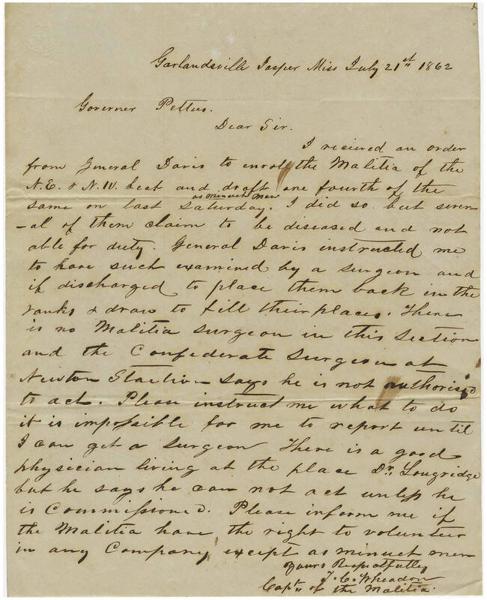 Garlandsville Jasper Miss July 21st 1862
Governer Pettus.
Dear Sir.
I recieved an order
from General Davis to enroll the Malitia of the
N.E. & N.W. beat and draft one fourth of the
as minuet men
same on last Saturday. I did so but sever
-al of them claim to be diseased and not
able for duty. General Davis instructed me
to have such examined by a surgeon and
if discharged to place them back in the
ranks & draw to fill their places. There
is no Malitia surgeon in this section
and the Confederate Surgeon at
Newton Staction says he is not authorised
to act. Pleas instruct me what to do
it is impossible for me to report until
I can get a surgeon There is a good
physician living at the place Dr. Lougridge
but he says he can not act unless he
is Commissioned. Please inform me if
the Malitia have the right to volunteer
in any Company except as minuet men
Yours Respectfully
T. C. Wheadon
Captn of the Malitia.